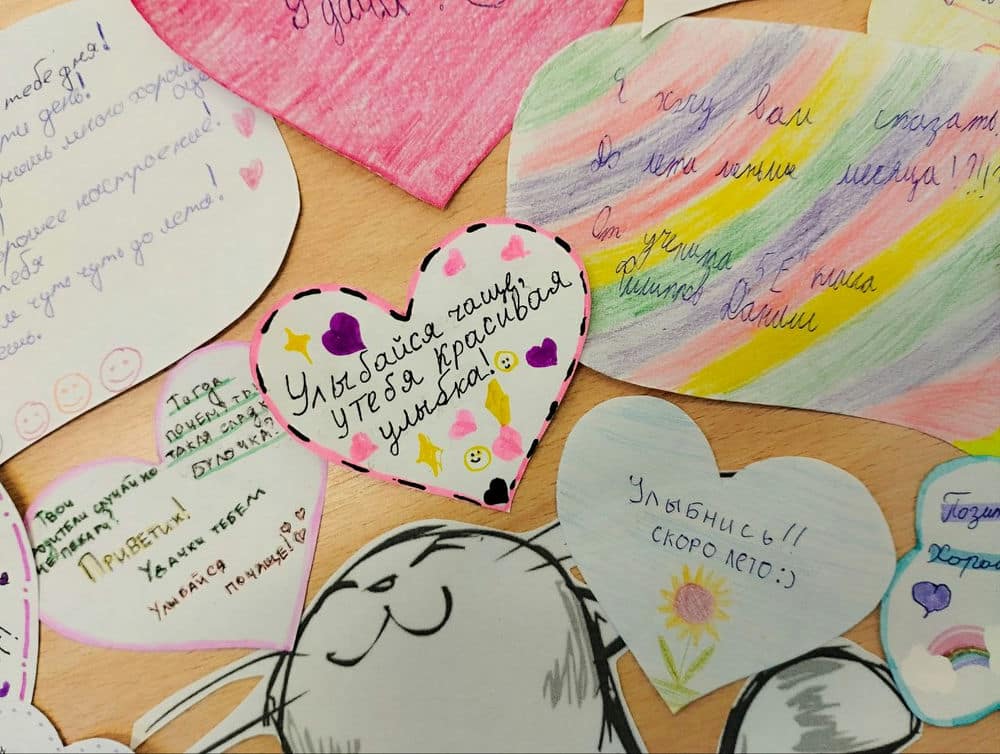 Удачи!
тебе дня!
день!
много хороших
хорошее настроение!
тебя
чуть чуть до лета!
Я хчу вам сказать
До лета меньше месяца!?!!?
От ученика 5 "Е" класса
Данил
Улыбайся чаще,
у тебя красивая
улыбка!
Тогда
почему ты
такая сладк
булочка?
Твои
родители случайно
не пекари?
Приветик!
Увачки тебем
Улыбайся
почаще!
Улыбнись!!
скоро лето:)
Пози
Хоро